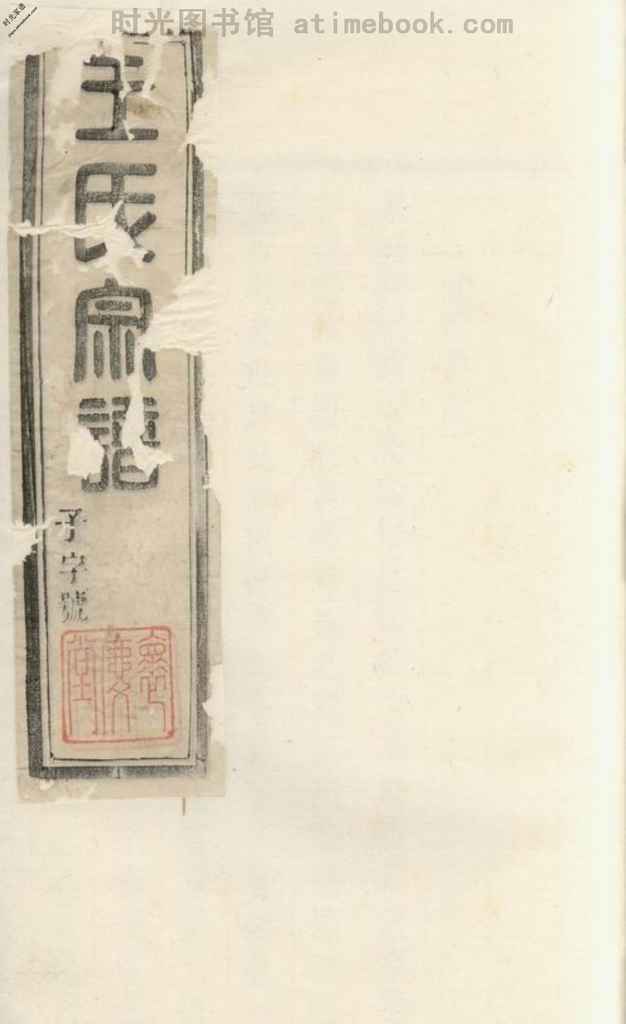 时光图书馆 atimebook.com
时光家谱
王氏宗譜
子字號